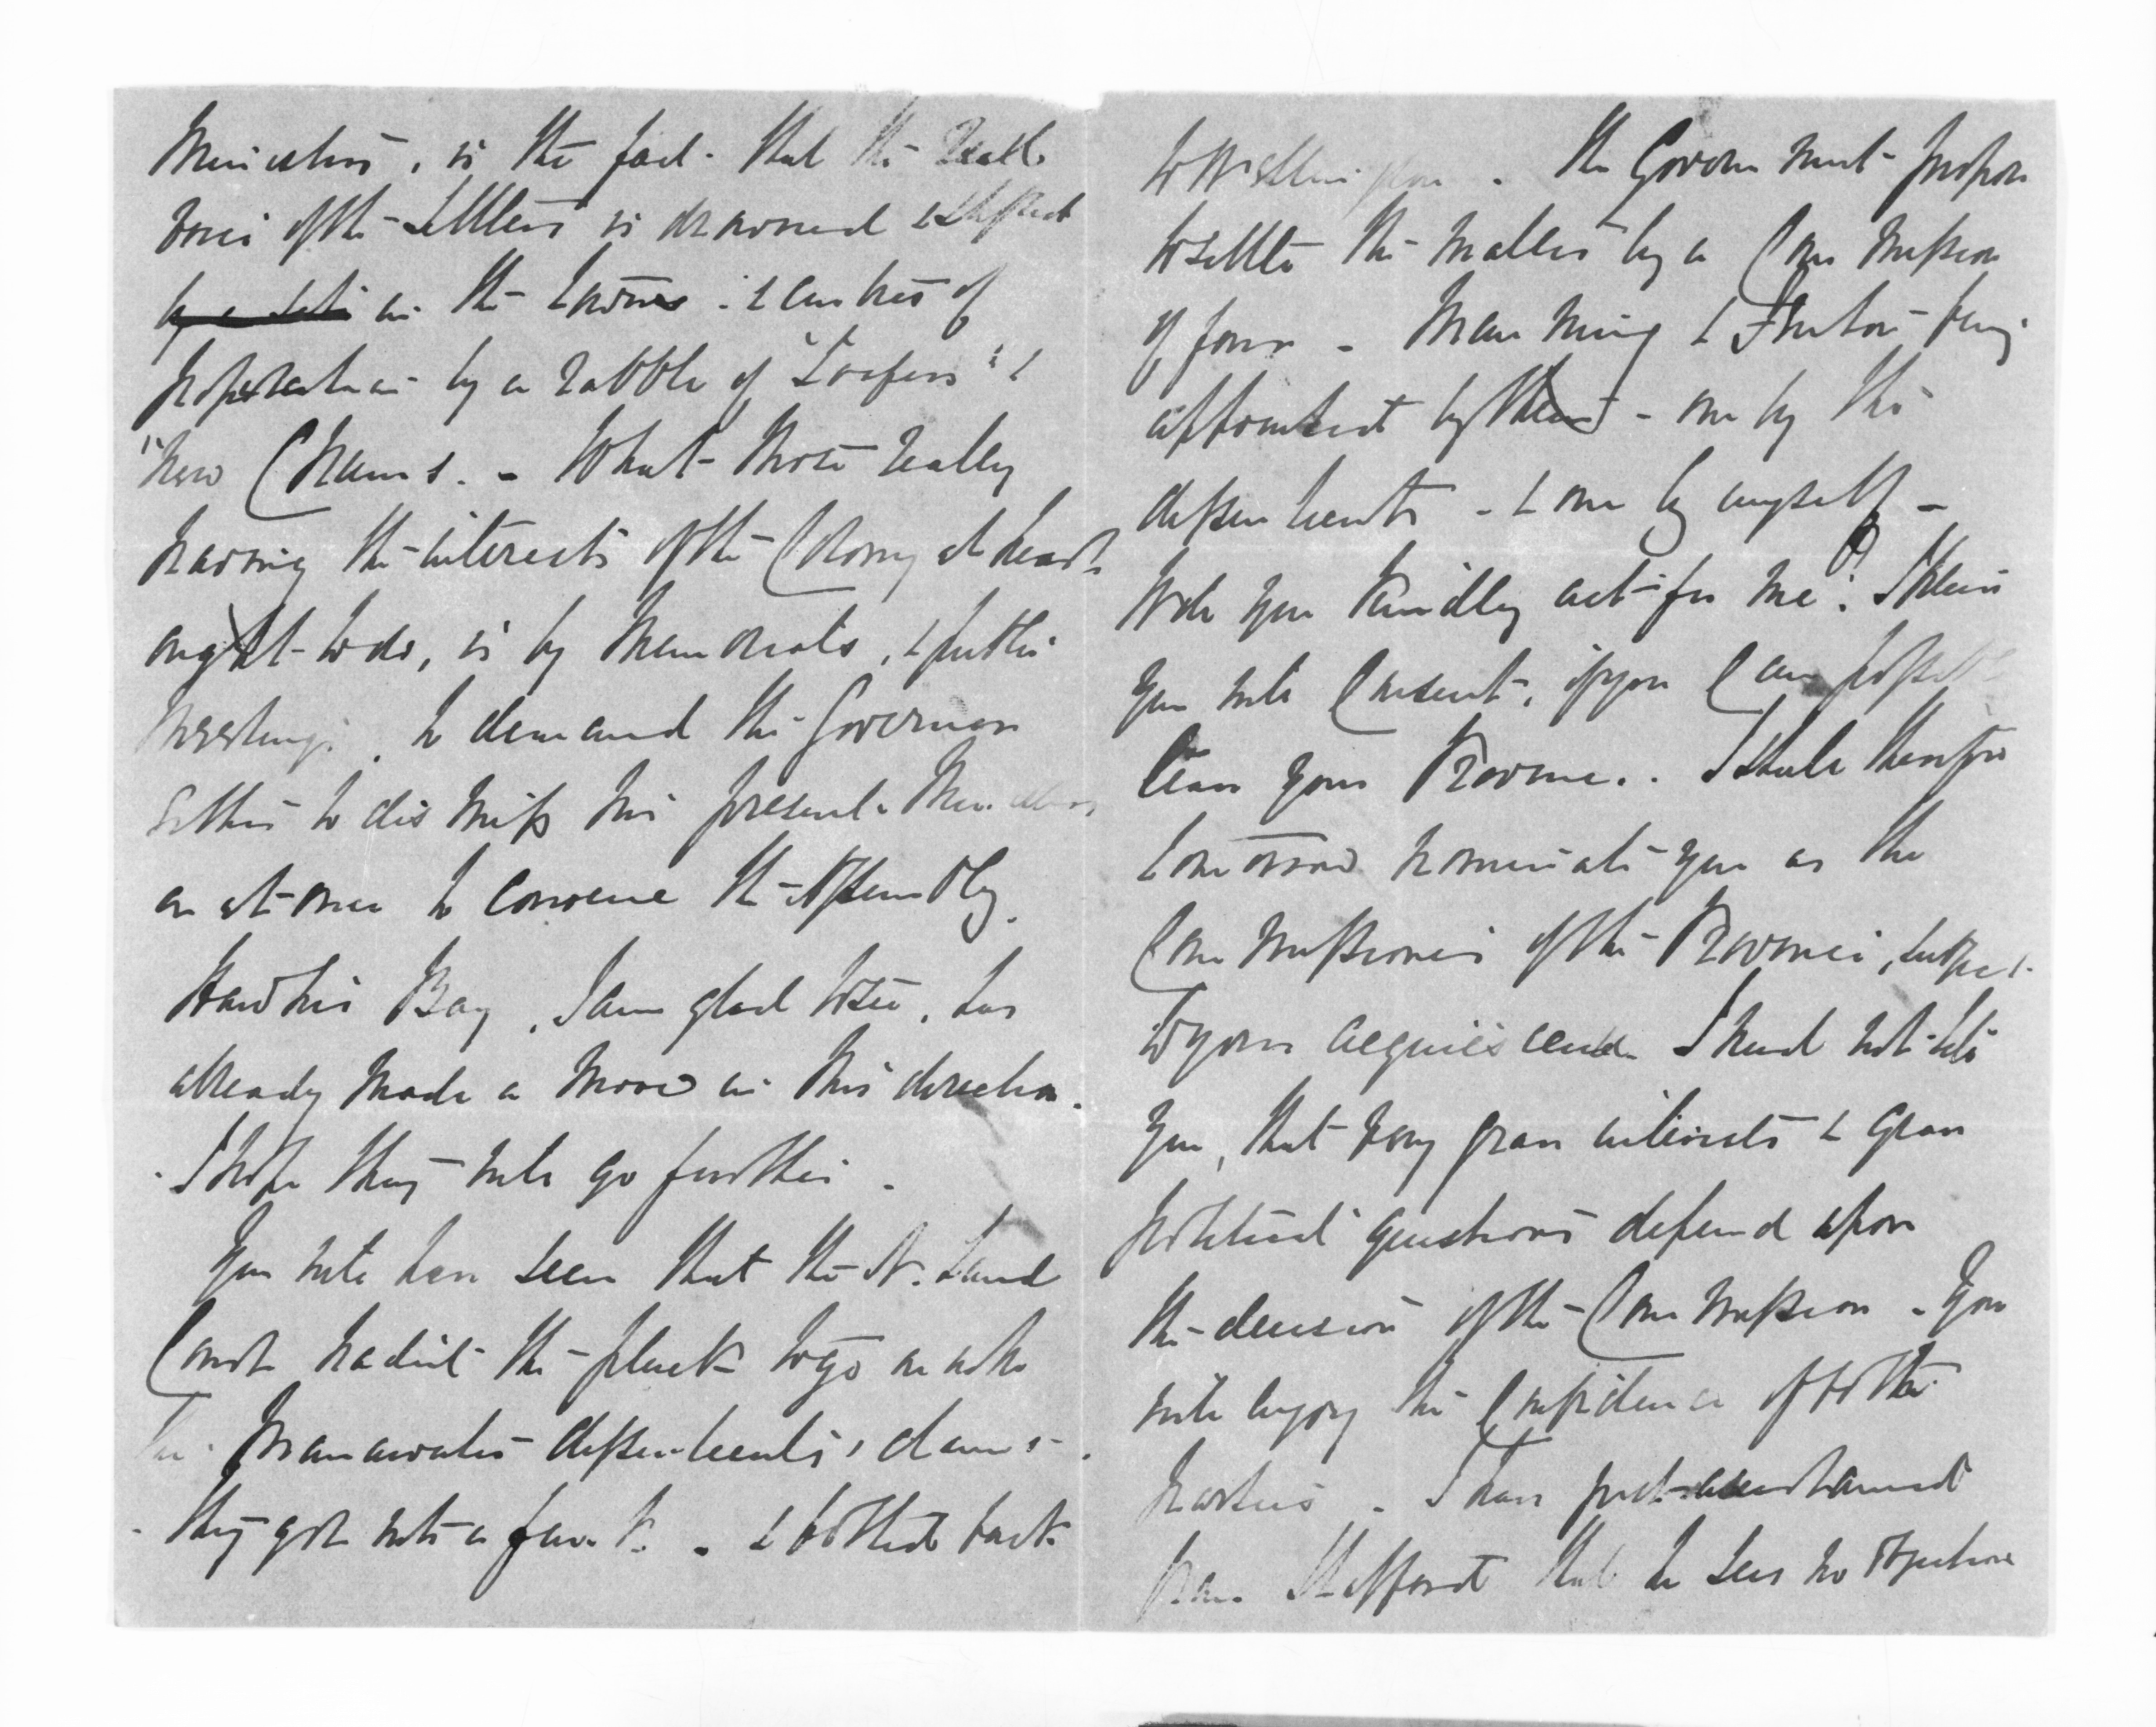 Ministers, is the fact that the real
voice of the settlers is drowned & stifled
by a sets in the Towns & centres of
population by a rabble of "Loafers" &
"New Chums. - What those really
having the interests of the Colony at heart
ought to do, is by Memorials, & public
Meetings, to demand the Governor
either to dismiss his present Ministers,
or at once to convene the Assembly.
Hawkes Bay, I am glad to see, has
already made a move in this direction.
I hope they will go further -
You will have seen that the N. Land
Court hadn't the pluck to go on with
the Manawatu dissentients' claims -
- they got into a funk - & bolted back
to Wellington. The Government propose
to settle the matter by a Commission
of four - Manning & Fenton being
appointed by them - one by the
dissentients - & one by myself -
Will you kindly act for me? I know
you will consent, if you can possibly
leave your Province. I shall therefore
tomorrow nominate you as the
Commissioner of the Province, subject
to your acquiescence. I need not tell
you, that very grave interests & grave
political questions depend upon
the decision of the Commission - You
will enjoy the confidence of both
parties - I have just ascertained
from Stafford that he sees no objection